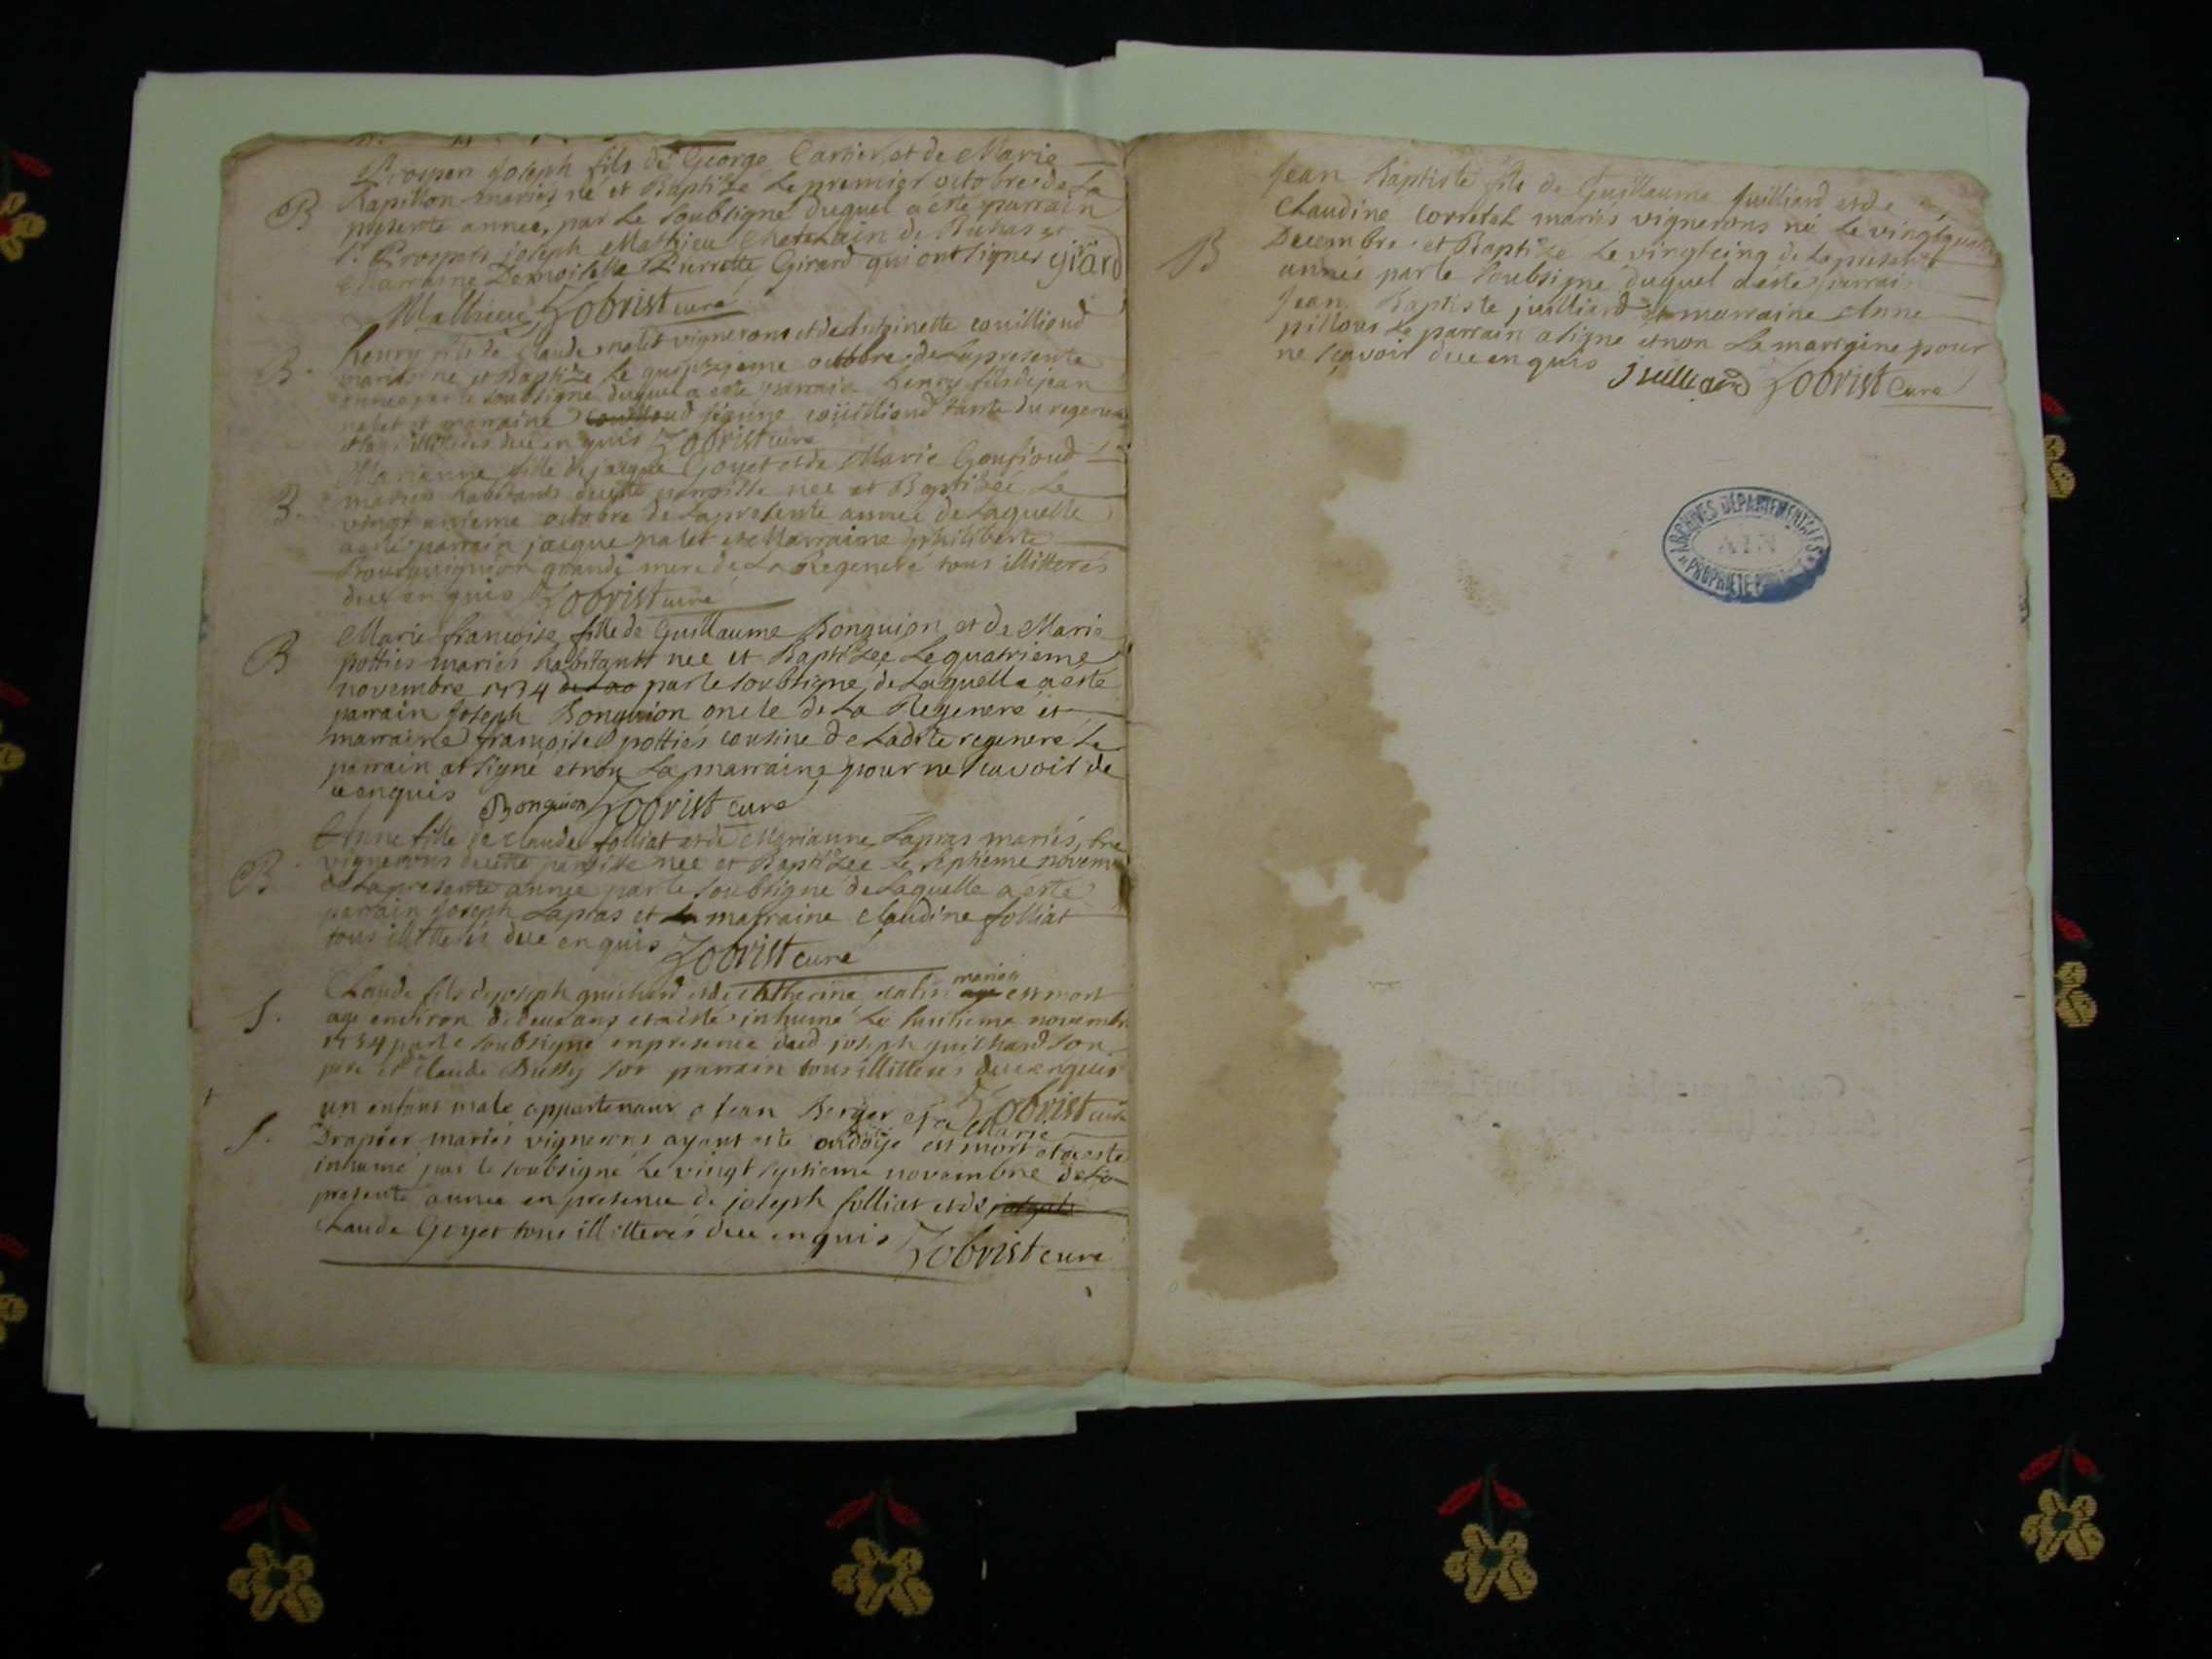 Prosper Joseph fils de George Cartier et de Marie
B Rapillon mariés né et Baptizé le premier octobre de la
presente année, par le soubsigné duquel a esté parrain
Sr Prosper joseph Mathieu Chatelain de et
Marraine Demoiselle Pierrette Girard qui ont signés girard
Mathieu Zobrist curé
B. henry fils de Claude nalet vignerons et de Antoinette couillioud
mariés né et Baptizé le quinzieme octobre de la presente
année par le soubsigné duquel a esté parrain henry fils de jean
nalet et marraine couilloud couillioud tante du regeneré
illiterés de ce enquis Zobrist curé
Marianne fille de jacque Goyet et de Marie Goufioud
B. mariés habitants de cette paroisse née et Baptizée le
vingt unieme octobre de la presente année de laquelle
a esté parrain jacque nalet et Marraine philiberte
Bourguignon grande mere de la Regeneré tous illitterés
de ce enquis Zobrist curé
Marie francoise fille de Guillaume Bonguion et de Marie
B pottier mariés habitants née et Baptizée le quatrieme
novembre 1734 de la par le soubsigné de laquelle a esté
parrain Joseph Bonguion oncle de la Regeneré et
marraine françoise pottier cousine de ladite regeneré le
parrain at signé et non la marraine pour ne scavoir de
ce enquis Bonguion Zobrist curé
Anne fille de Claude folliat et de Marianne Lapras mariés,
B. vignerons de cette paroisse née et Baptizée le septieme novembre
de la presente année par le soubsigné de laquelle a esté
parrain Joseph Lapras et la marraine Claudine folliat
tous illitterés de ce enquis Zobrist curé
Claude fils de joseph guichard et de Catherine mariés est mort
S. agé environ de deux ans et a esté inhumé le huitieme novembre
1734 par le soubsigné en presence dud joseph guichard son
pere et Claude son parrain tous illitterés de ce enquis
Zobrist curé
un enfant male appartenant a Jean Berger et a Marie
S. Drapier mariés vignerons ayant esté ondoyé est mort et a esté
inhumé par le soubsigné le vingt septieme novembre de la
presente année en presence de joseph folliat et de joseph
Claude Goyet tous illitterés de ce enquis Zobrist curé
Jean Baptiste fils de Guillaume Juilliard et de
Claudine mariés vignerons né le vingtquatre
B Decembre et Baptizé le vingtcinq de la presente
année par le soubsigné duquel a esté parrain
Jean Baptiste juilliard et marraine Anne
le parrain a signé et non la marraine pour
ne scavoir de ce enquis Juilliard Zobrist Curé
ARCHIVES DÉPARTEMENTALES
AIN
PROPRIETE